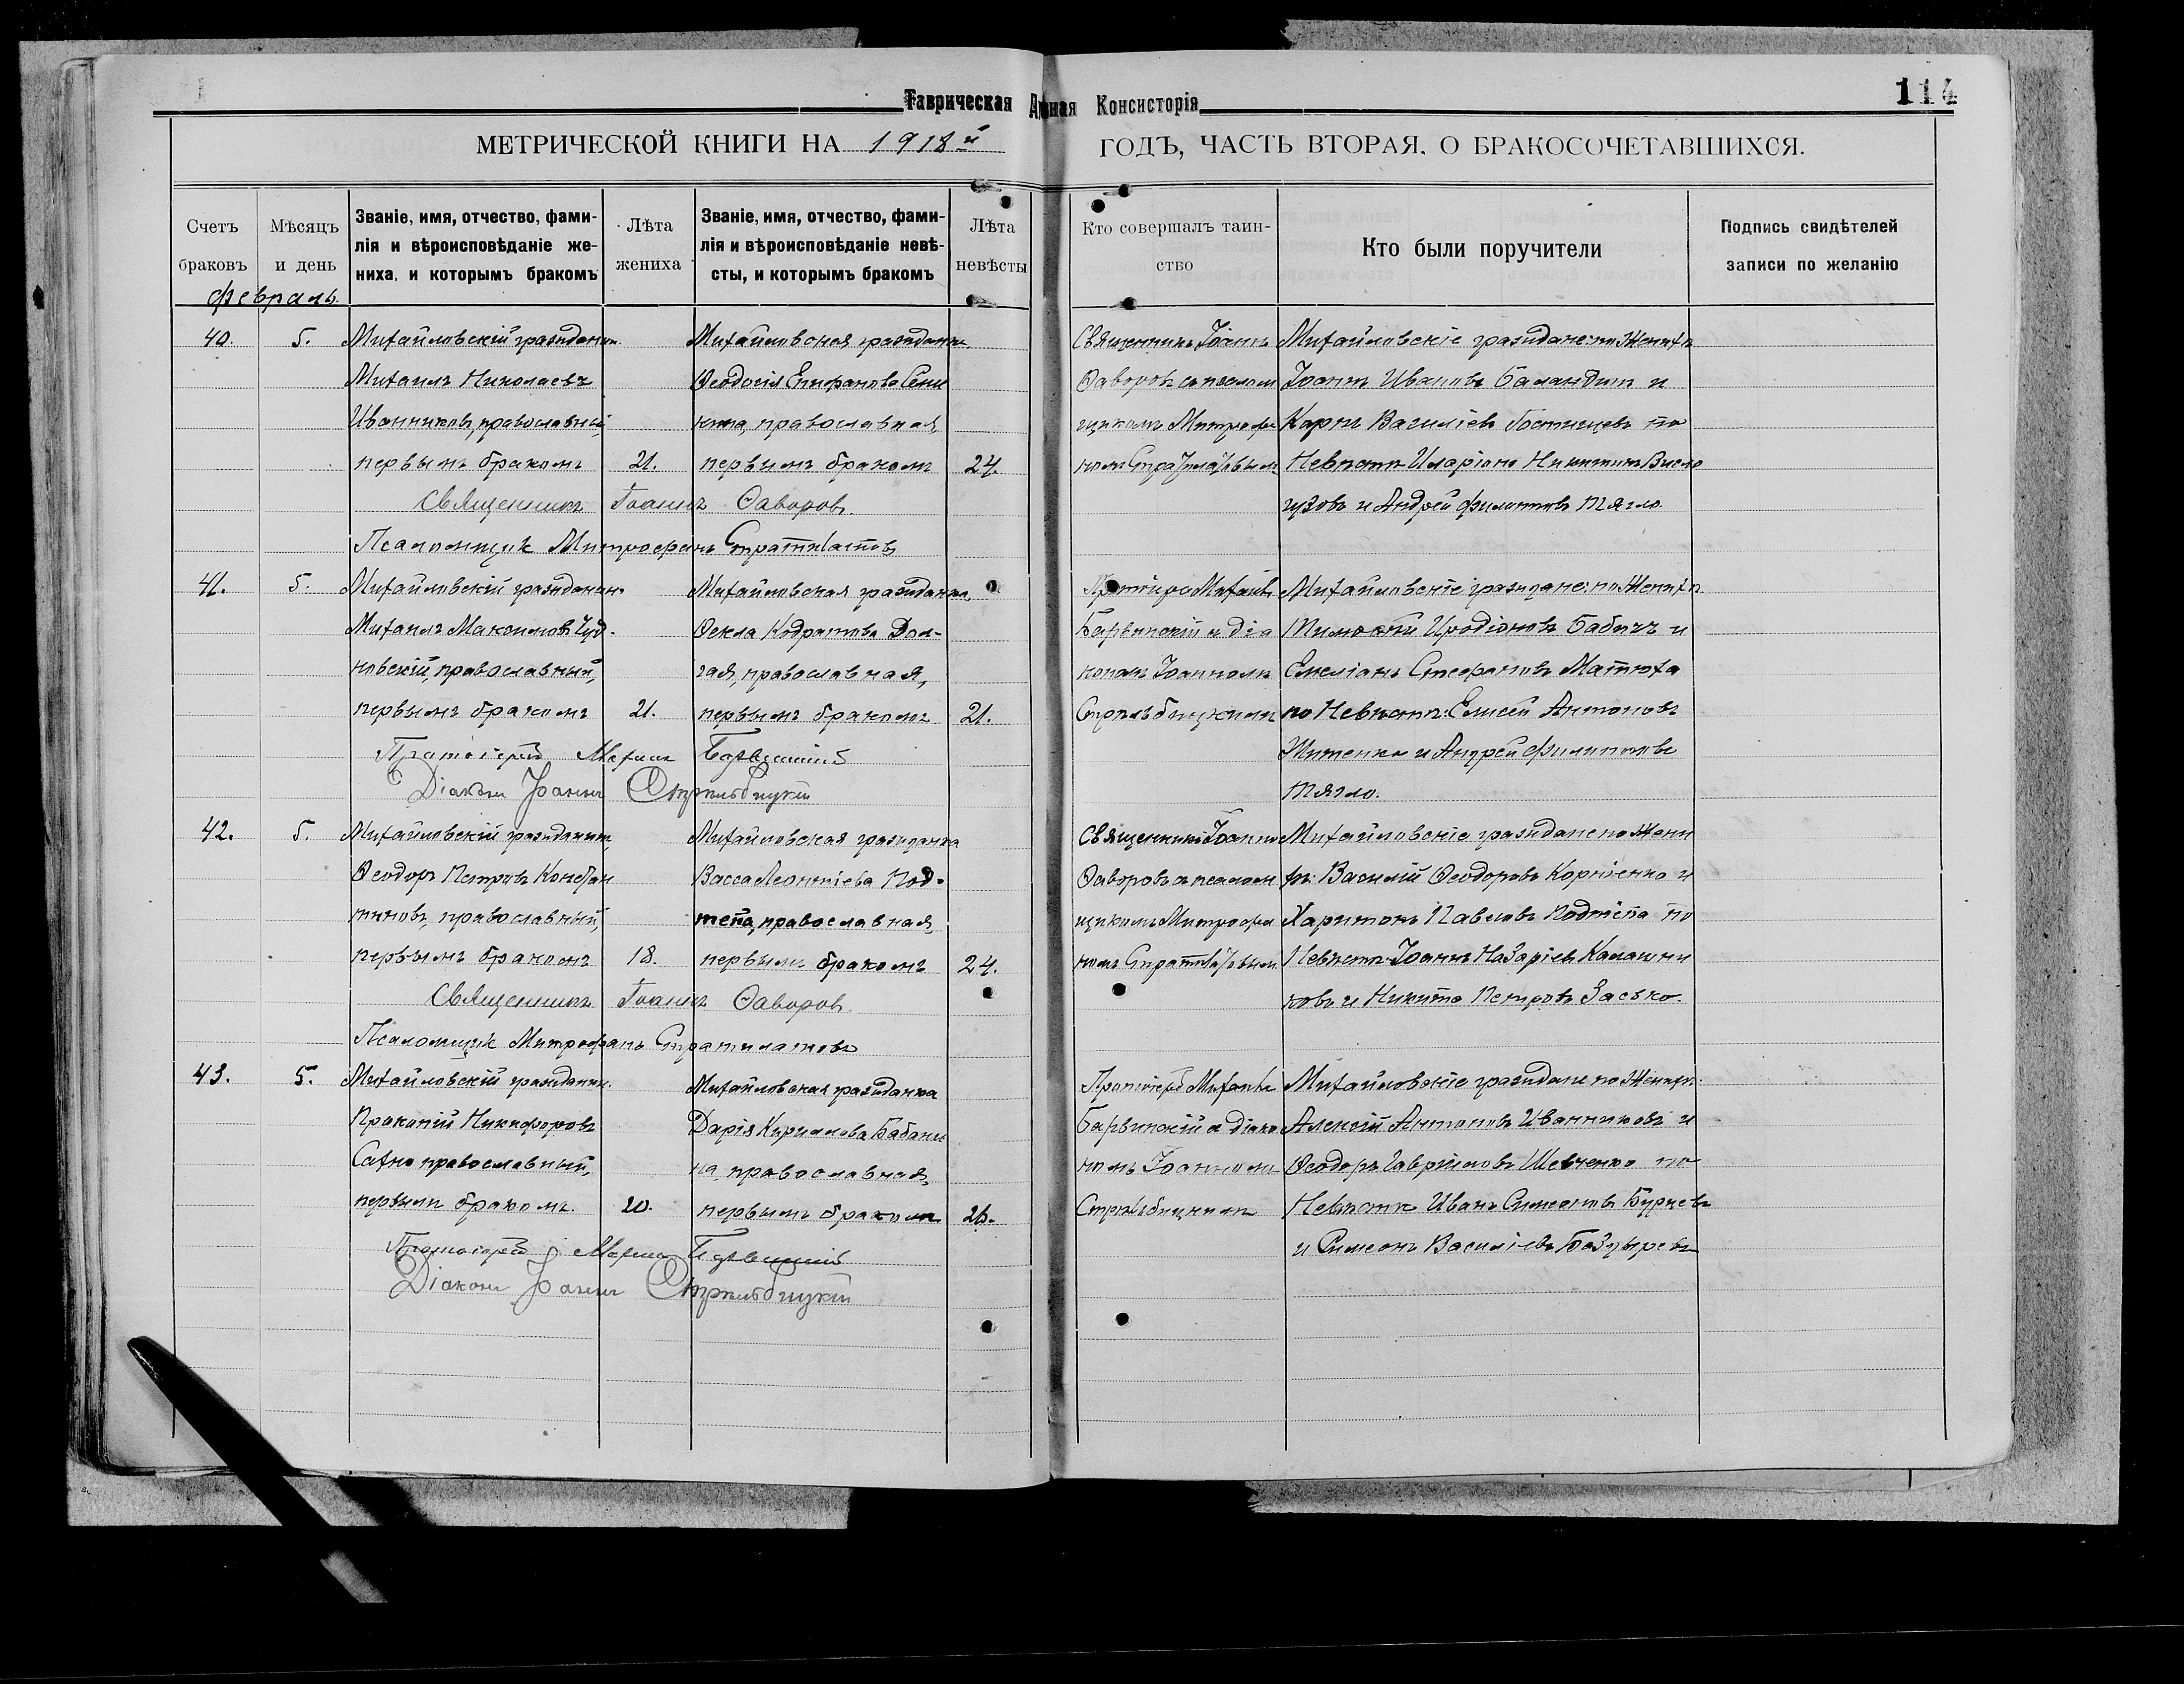 Таврическая Консисторія
114
МЕТРИЧЕСКОЙ КНИГИ НА 1918й ГОДЪ, ЧАСТЬ ВТОРАЯ, О БРАКОСОЧЕТАВШИХСЯ.
Счетъ браковъ
Мѣсяцъ и день
Званіе, имя, отчество, фами-
лія и вѣроисповѣданіе же-
ниха, и которымъ бракомъ
Лѣта жениха
Званіе, имя, отчество, фами-
лія и вѣроисповѣданіе невѣ-
сты, и которымъ бракомъ
Лѣта невѣсты
Кто совершалъ таин-
ство
Кто были поручители
Подпись свидѣтелей
записи по желанію
февраль.
40. 5. Михайловскій гражданин
Михаилъ Николаевъ
Иванниковъ, православный,
первымъ бракомъ 21.
Михайловская гражданка
Ѳеодосія Епифанова
православная,
первымъ бракомъ 24.
Священникъ Іоаннъ
Ѳаворовъ с псалом
щикомъ Митрофа
номъ Стратилатовым
Михайловскіе граждане: по Женихѣ
Іоаннъ Ивановъ Баландин и
Карпъ Василіев Гостищевъ по
Невѣстѣ Иларіонъ Никитин Висло
гузовъ и Андрей Филиппов Тягло.
Священникъ Іоаннъ Ѳаворовъ.
Псаломщик Митрофанъ Стратилатовъ
41. 5. Михайловскій гражданин.
Михаилъ Максимовъ Чуд-
новскій, православный,
первымъ бракомъ 21.
Михайловская гражданка
Ѳекла Кодратова Дол-
гая, православная,
первымъ бракомъ 21.
Протоіерей Михаилъ
Барвинскій и діа
кономъ Іоанномъ
Стрѣльбицкимъ
Михайловскіе граждане: по Женихѣ.
Тимофей Иродіоновъ Бабичъ и
Емеліанъ Стефановъ Матюха
по Невѣстѣ: Елисей Антоновъ
Житенко и Андрей Филипповъ
Тягло.
Протоіерей Михаилъ Барвинскій
Діаконъ Іоаннъ Стрѣльбицкій
42. 5. Михайловскій гражданин
Ѳеодоръ Петровъ Констан
тиновъ, православный,
первымъ бракомъ 18.
Михайловская гражданка
Васса Леонтіева Под-
тепа, православная,
первымъ бракомъ 24.
Священникъ Іоаннъ
Ѳаворовъ с псалом
щикомъ Митрофа
номъ Стратилатовым
Михайловскіе граждане по Жени
хѣ: Василій Ѳеодоровъ Корніенко и
Харитонъ Павловъ Подтепа по
Невѣстѣ Іоаннъ Назаріев Калашни
ковъ и Никита Петровъ Засько.
Священникъ Іоаннъ Ѳаворовъ.
Псаломщик Митрофанъ Стратилатовъ
43. 5. Михайловскій гражданин.
Прокопій Никифоровъ
Сахно православный,
первымъ бракомъ. 20.
Михайловская гражданка
Дарія Кирилова Бабани
на, православная,
первымъ бракомъ
Протоіерей Михаилъ
Барвинскій с діако
номъ Іоанномъ
Стрѣльбицкимъ
Михайловскіе граждане по Женихѣ:
Алексій Антоновъ Иванниковъ и
Ѳеодоръ Гавріиловъ Шевченко по
Невѣстѣ Иванъ Симеоновъ Бурцевъ
и Симеонъ Василіевъ Баздыревъ
Протоіерей Михаилъ Барвинскій
Діаконъ Іоаннъ Стрѣльбицкій